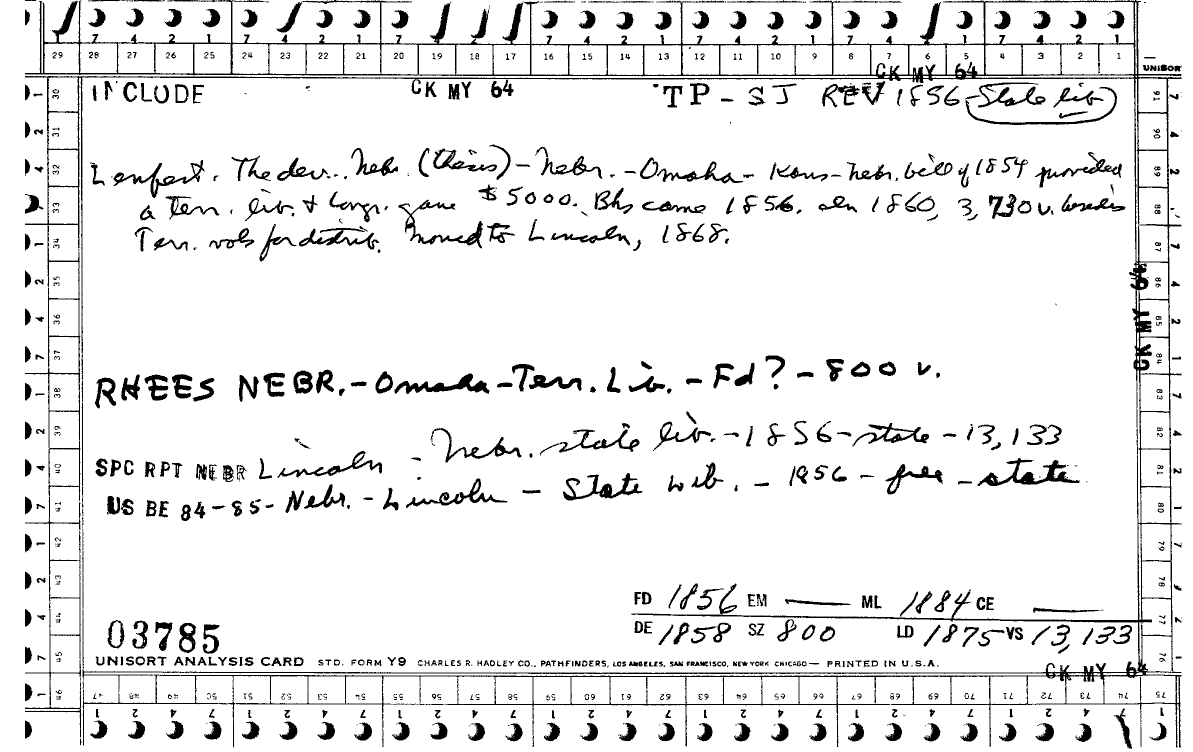 29 28 27 26 25 24 23 22 21 20 19 18 17 16 15 14 13 12 11 10 9 8 7 6 5 4 3 2 1
UNISORT
CK MY 64
INCLUDE CK MY 64 TP - SJ REV 1856 State lib
Lenfest. The dev.. Nebr. (thesis) - Nebr. - Omaha - Kans-Nebr. bill of 1854 provided
a terr. lib. & Congr. gave $5000. Bks came 1856. in 1860, 3,730 v. besides
Terr. vols for distrib. Moved to Lincoln, 1868.
CK MY 64
RHEES NEBR. - Omaha - Terr. Lib. - Fd? - 800 v.
SPC RPT NEBR Lincoln - Nebr. state lib. - 1856 - state - 13,133
US BE 84-85 - Nebr. - Lincoln - State lib. - 1856 - free - state
FD 1856 EM — ML 1884 CE —
DE 1858 SZ 800 LD 1875 VS 13,133
03785
UNISORT ANALYSIS CARD STD. FORM Y9 CHARLES R. HADLEY CO., PATHFINDERS, LOS ANGELES, SAN FRANCISCO, NEW YORK CHICAGO — PRINTED IN U.S.A.
CK MY 64
47 48 49 50 51 52 53 54 55 56 57 58 59 60 61 62 63 64 65 66 67 68 69 70 71 72 73 74 75